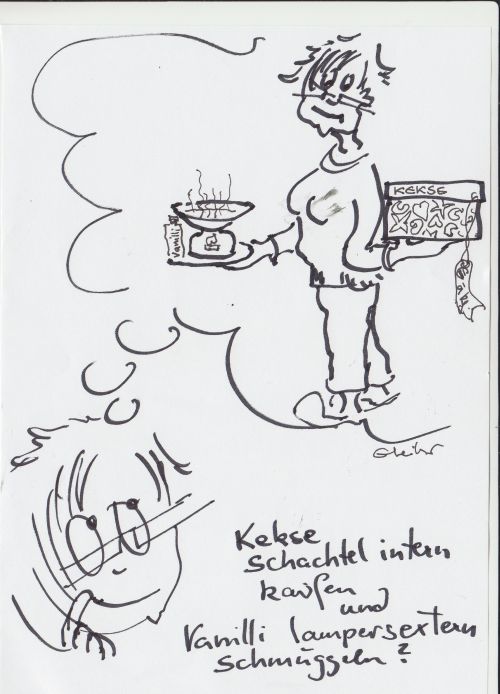 KEKSE
Vanilli
Kekse
Schachtel intern
kaufen
und
Vanilli lampersextern
schmuggeln?